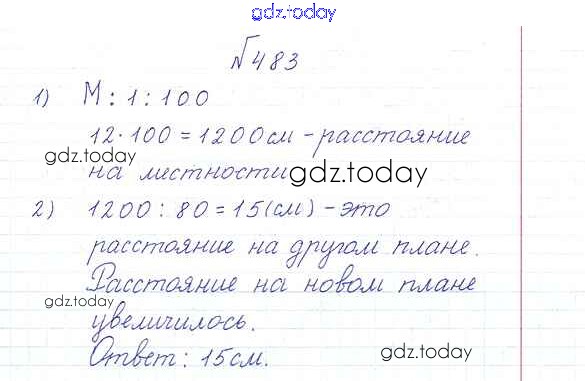 gdz.today
№483
1) М: 1 : 100
12·100=1200см - расстояние
gdz.today
на местности
gdz.today
2) 1200 : 80 = 15(см) - это
расстояние на другом плане.
Расстояние на новом плане
gdz.today
увеличилось.
Ответ: 15см.
gdz.today